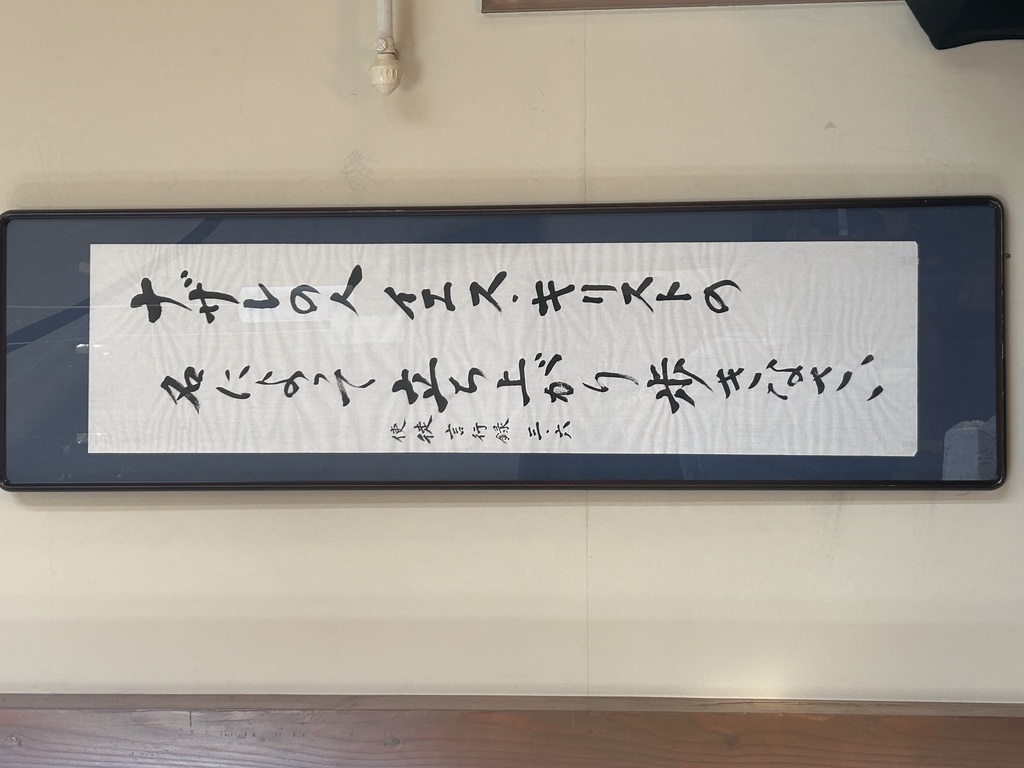 ナザレの人イエス・キリストの
名によって立ち上がり歩きなさい、
使徒言行録 三・六